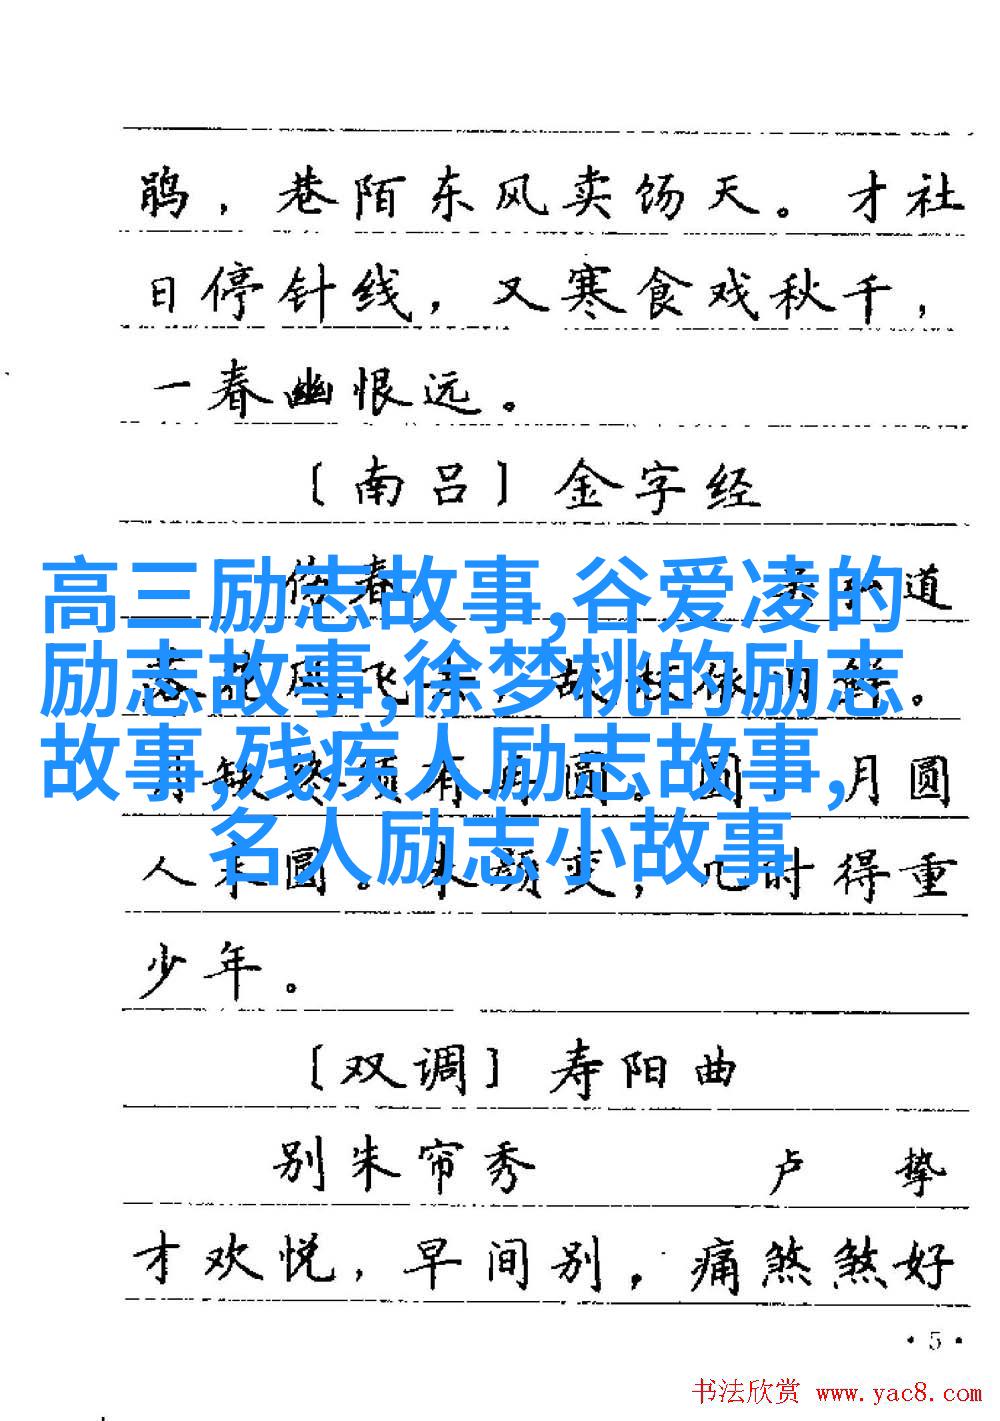 鹃，巷陌东风卖饧天。才社
日停针线，又寒食戏秋千，
一春幽恨远。
〔南吕〕金字经
春 道
高三励志故事,谷爱凌的
励志故事,徐梦桃的励志
故事,残疾人励志故事,
名人励志小故事
飞 依
有再圆。圆，月圆
人未圆。朱颜变，几时得重
少年。
〔双调〕寿阳曲
别朱帘秀 卢挚
才欢悦，早间别，痛煞煞好
·5·
书法欣赏 www.yac8.com